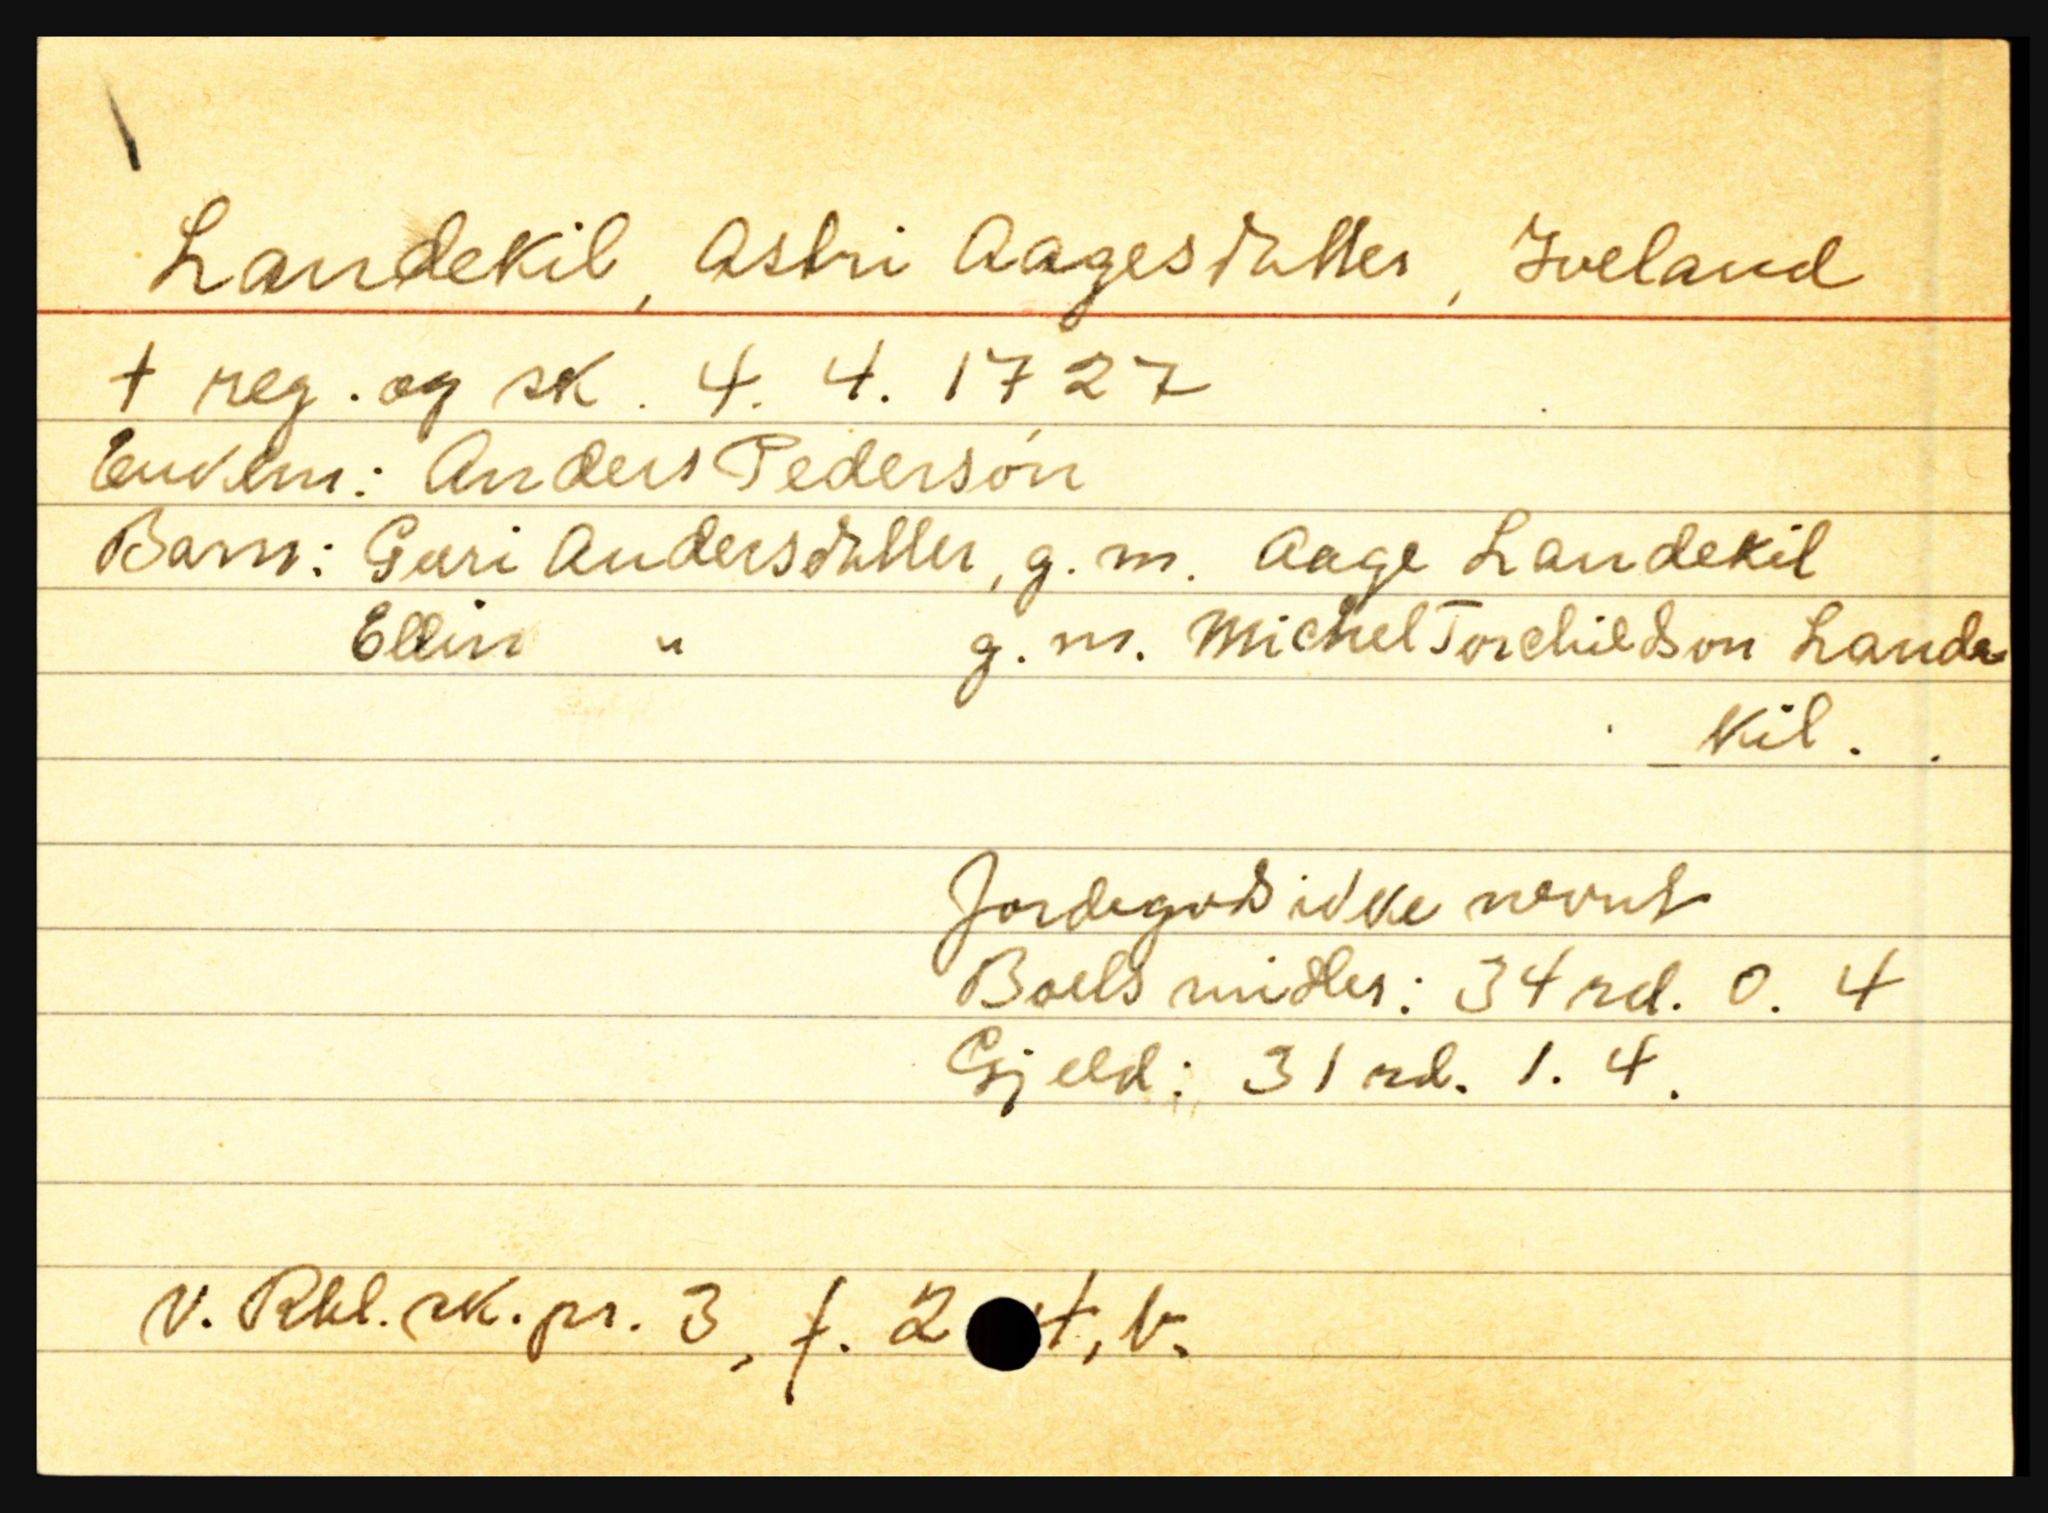 Landekil, Astri Aagesdatter, Iveland
† reg. og sk. 4. 4. 1727
Enkem: Anders Pederson
Barn: Guri Andersdatter, g. m. Aage Landekil
Ellin " g. m. Michel Torchildson Lande
kil.
Jordegods ikke nevnt
Boets midler: 34 rd. 0. 4
Gjeld: 31 rd. 1. 4.
v. Rbl. sk. pr. 3, f. 2 4, b.